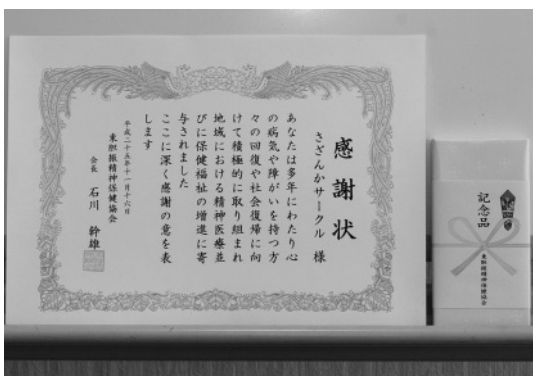 感謝状
さざんかサークル 様
あなたは多年にわたり心
の病気や障がいを持つ方
々の回復や社会復帰に向
けて積極的に取り組まれ
地域における精神医療並
びに保健福祉の増進に寄
与されました
ここに深く感謝の意を表
します
平成二十五年十一月十六日
東胆振精神保健協会
会長 石川 幹雄
記念品
東胆振精神保健協会